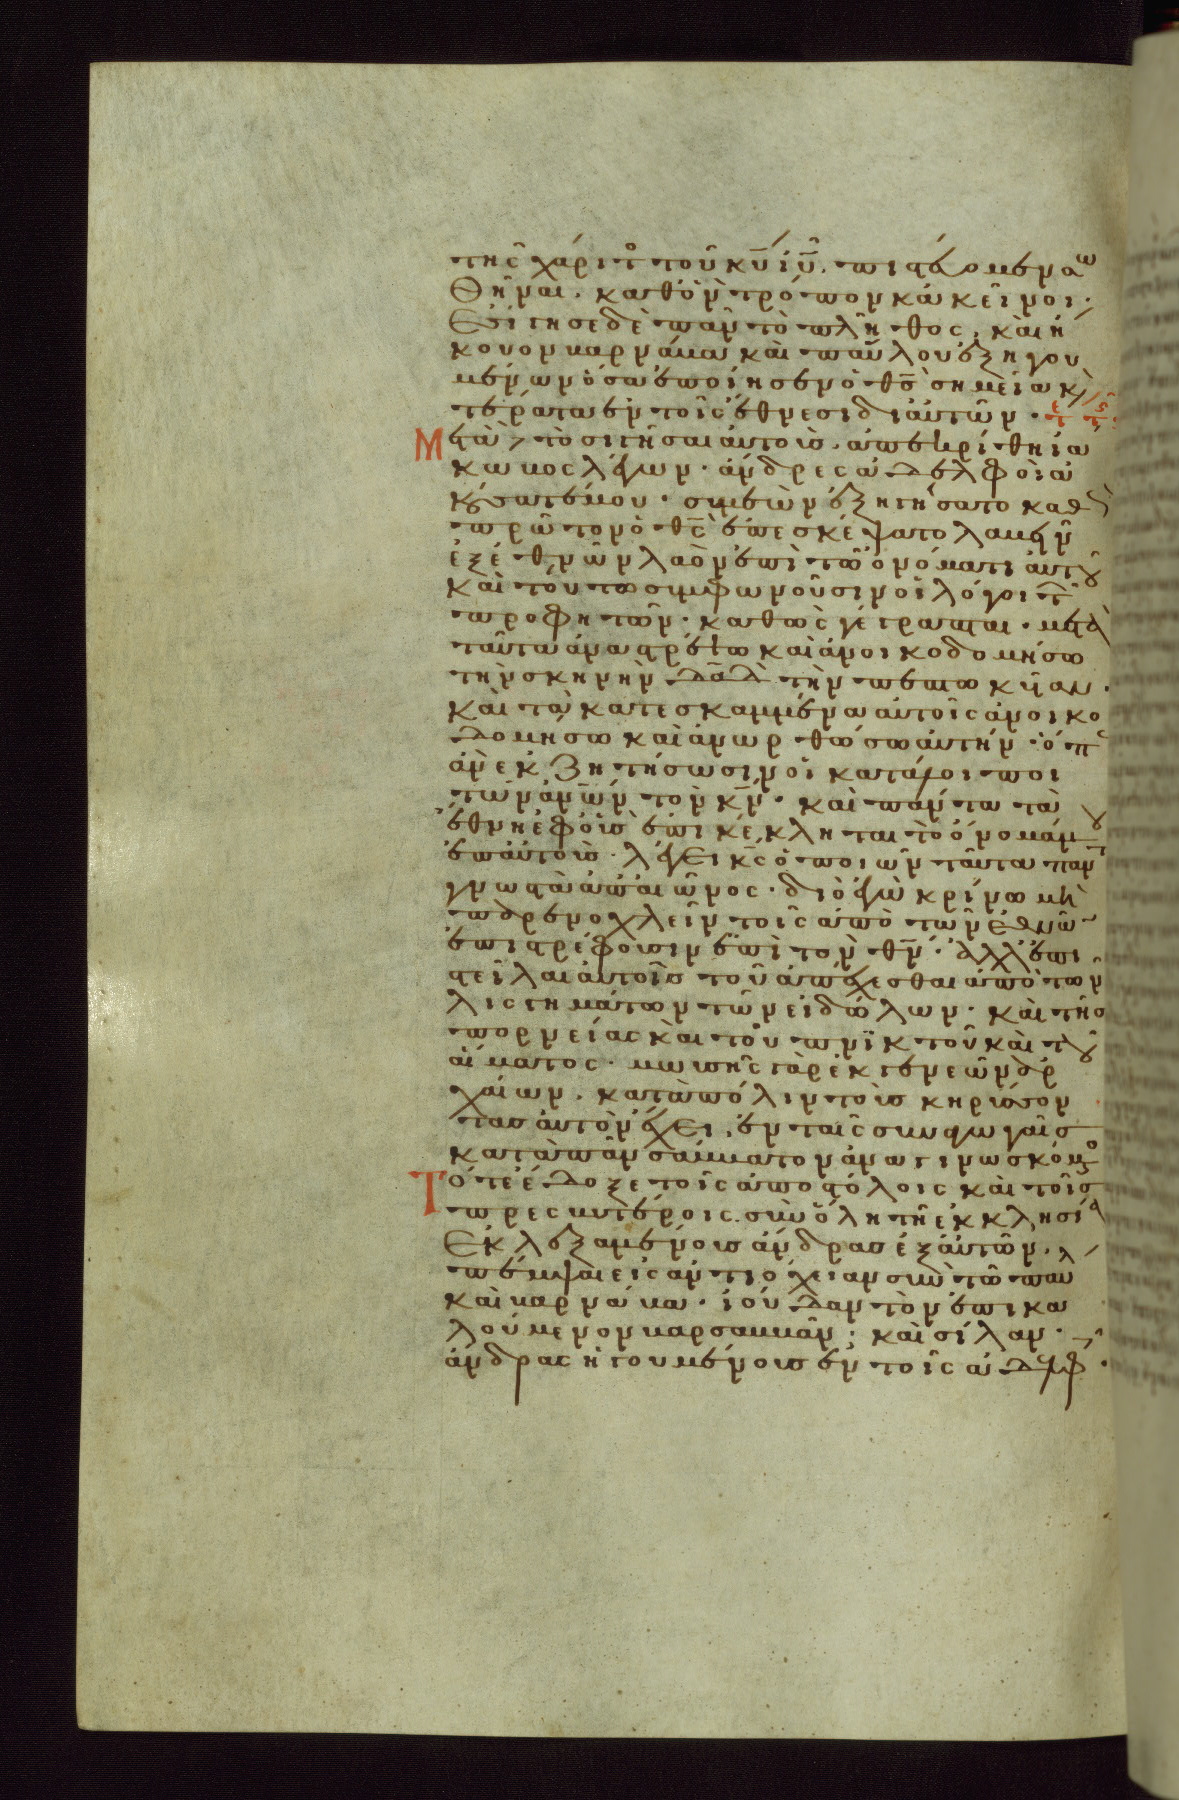 της χάριτο τοῦ κυ ιυ. πιστεύομεν σω
θῆναι. καθ' ὃν τρόπον κἀκεῖνοι.
Εσίγησε δὲ πᾶν τὸ πλῆθος, καὶ ἤ
κουον βαρνάβα καὶ παύλου ἐξηγου
μένων ὅσα ἐποίησεν ὁ θς σημεῖα κ
τέρατα ἐν τοῖς ἔθνεσι δι αὐτῶν.
Μετὰ τὸ σιγῆσαι αὐτοὺσ. ἀπεκρίθη ἰά
κωβος λέγων. ἄνδρες ἀδελφοὶ ἀ
κούσατέ μου. σιμεὼν ἐξηγήσατο καθ
πρῶτον ὁ θς ἐπεσκέψατο λαβεῖν
ἐξ ἐθνῶν λαὸν ἐπὶ τῶ ὀνόματι αὐτου
καὶ τούτω συμφωνοῦσιν οἱ λόγοι τ
προφητῶν. καθὼς γέγραπται. μετὰ
ταῦτα ἀναστρέψω καὶ ἀνοικοδομήσω
τὴν σκηνὴν δαδ τὴν πεπτωκυῖαν.
καὶ τὰ κατεσκαμμένα αὐτοῖς ἀνοικο
δομήσω καὶ ἀνωρθώσω αὐτήν. ὅπ
ἂν ἐκζητήσωσιν οἱ κατάλοιποι
τῶν ανων τὸν κν. καὶ πάντα τὰ
ἔθνη ἐφ' οὓσ ἐπικέκληται τὸ ὄνομά μου
ἐπ αὐτοὺσ. λέγει κς ὁ ποιῶν ταῦτα παντ
γνωστὰ ἀπ αἰῶνος. διὸ ἐγὼ κρίνω μὴ
παρενοχλεῖν τοῖς ἀπὸ τῶν ἐθνῶ
ἐπιστρέφουσιν ἐπὶ τὸν θν. ἀλλ' ἐπι
στεῖλαι αὐτοῖσ τοῦ ἀπέχεσθαι ἀπὸ τῶν
λιστημάτων τῶν εἰδώλων. καὶ τῆσ
πορνείας καὶ τοῦ πνικτοῦ καὶ του
αἵματος. μωσῆς γὰρ ἐκ γενεῶν ἀρ
χαίων. κατὰ πόλιν τοὺσ κηρύσσον
τασ αὐτὸν ἔχει, ἐν ταῖς συναγωγαῖσ
κατὰ πᾶν σάββατον ἀναγινωσκόμο
Τότε ἔδοξε τοῖς ἀποστόλοις καὶ τοῖσ
πρεσβυτέροις. σὺν ὅλη τῆ ἐκκλησία
Εκλεξαμένουσ ἄνδρασ ἐξ αὐτῶν.
πέμψαι εἰς ἀντιόχειαν σὺν τῶ παυ
λ καὶ βαρνάβα. ἰούδαν τὸν ἐπικα
λούμενον βαρσαββᾶν. καὶ σίλαν.
ἄνδρας ἡγουμένουσ ἐν τοῖς ἀδελφ.